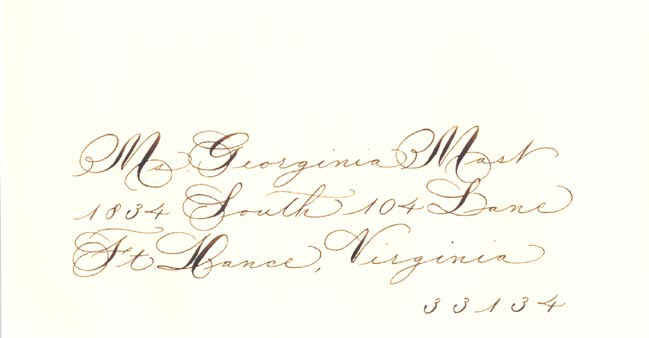 Ms. Georginia Mast
1834 South 104 Lane
Ft Hance, Virginia
33134